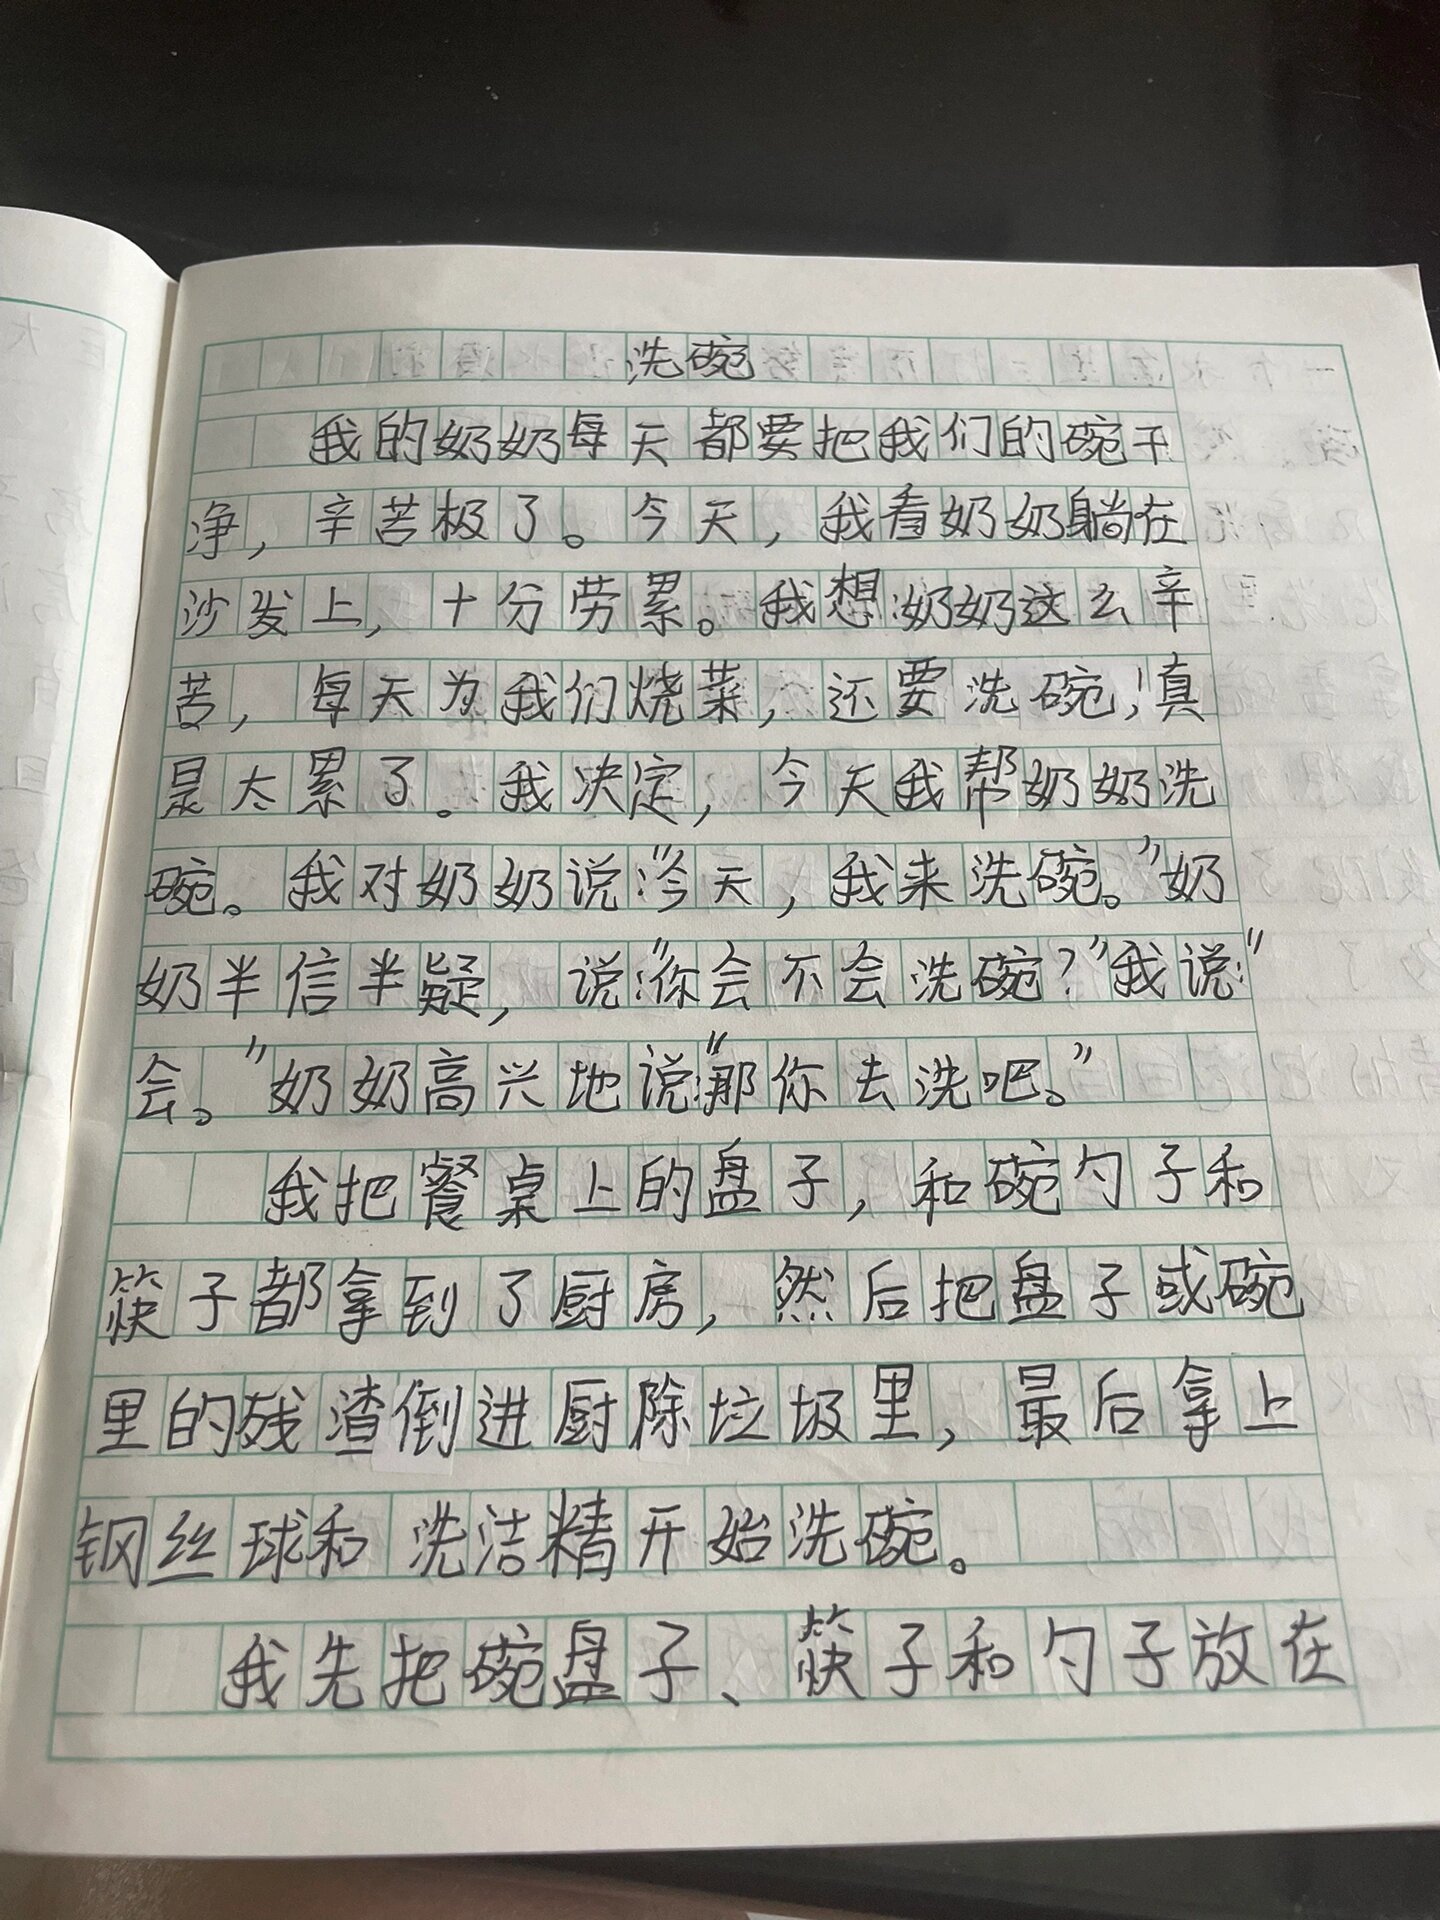 洗碗
我的奶奶每天都要把我们的碗干
净，辛苦极了。今天，我看奶奶躺在
沙发上，十分劳累。我想：奶奶这么辛
苦，每天为我们烧菜，还要洗碗，真
是太累了。我决定，今天我帮奶奶洗
碗。我对奶奶说：“今天，我来洗碗。”奶
奶半信半疑，说：“你会不会洗碗？”我说：“
会。”奶奶高兴地说：“那你去洗吧。”
我把餐桌上的盘子，和碗勺子和
筷子都拿到了厨房，然后把盘子或碗
里的残渣倒进厨除垃圾里，最后拿上
钢丝球和洗洁精开始洗碗。
我先把碗盘子、筷子和勺子放在